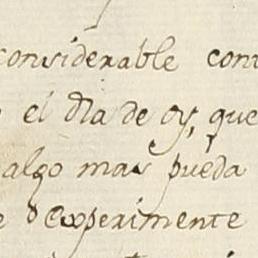 considerable con
el dia de oy, que
algo mas pueda
experimente